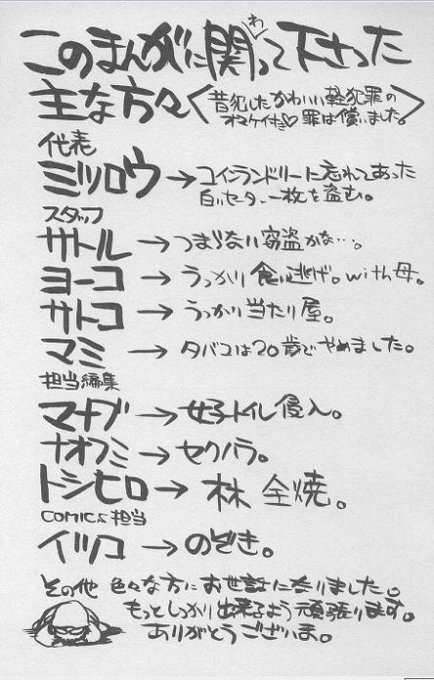 このまんがに関わって下さった
主な方々<昔犯したかわいい軽犯罪の
オマケ付き♡罪は償いました。>
代表
ミツロウ→コインランドリーに忘れてあった
白いセーター一枚を盗む。
スタッフ
サトル→つまらない窃盗かな…。
ヨーコ→うっかり食い逃げ。with母。
サトコ→うっかり当たり屋。
マミ→タバコは20歳でやめました。
担当編集
マナブ→女子トイレ侵入。
ナオフミ→セクハラ。
トシヒロ→林全焼。
COMICS担当
イツコ→のぞき。
その他色々な方にお世話になりました。
もっとしっかり出来るよう頑張ります。
ありがとうございま。